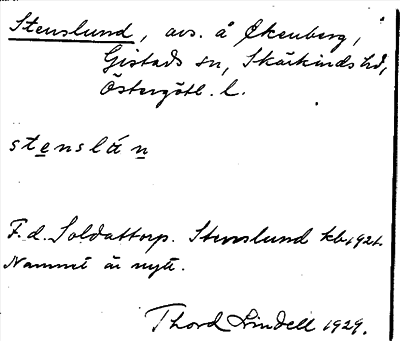 Stenslund, avs. å Ekenberg,
Gistads sn, Skärkinds hd,
Östergötl. l.
stenslán
F.d. Soldattorp. Stenslund kb. 1921.
Namnet är nytt.
Thord Lindell 1929.